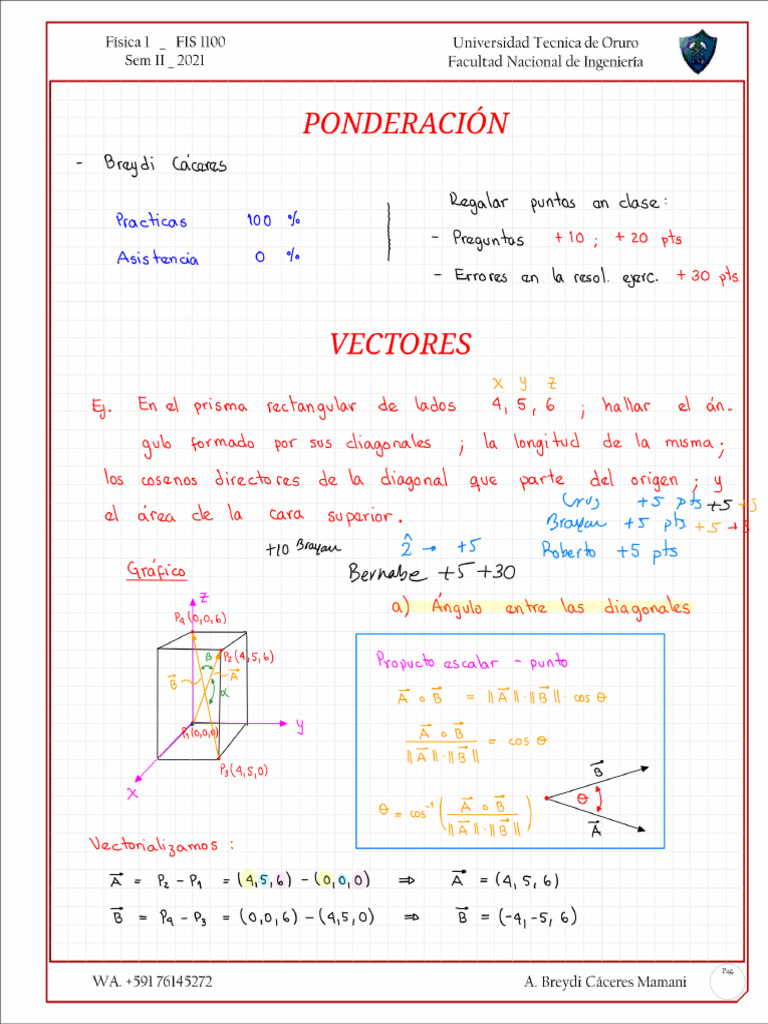 Física 1 _ FIS 1100
Sem II _ 2021
Universidad Tecnica de Oruro
Facultad Nacional de Ingeniería
PONDERACIÓN
- Breydi Cáceres
Practicas 100 %
Asistencia 0 %
Regalar puntos en clase:
- Preguntas +10 ; +20 pts
- Errores en la resol. ejerc. +30 pts.
VECTORES
x y z
Ej. En el prisma rectangular de lados 4, 5, 6 ; hallar el án-
gulo formado por sus diagonales ; la longitud de la misma ;
los cosenos directores de la diagonal que parte del origen ; y
el área de la cara superior.
Cruz +5 pts +5 +5
Brayan +5 pts +5 +5
+10 Brayan
2̂ → +5
Roberto +5 pts
Bernabe +5 +30
Gráfico
a) Ángulo entre las diagonales
z
P4 (0,0,6)
P2 (4,5,6)
β
A⃗
B⃗
α
P1 (0,0,0)
y
P3 (4,5,0)
x
Propucto escalar - punto
A⃗ ∘ B⃗ = ||A⃗|| · ||B⃗|| · cos θ
A⃗ ∘ B⃗ / ||A⃗|| · ||B⃗|| = cos θ
θ = cos⁻¹ ( A⃗ ∘ B⃗ / ||A⃗|| · ||B⃗|| )
B⃗
θ
A⃗
Vectorializamos :
A⃗ = P2 - P1 = (4,5,6) - (0,0,0) ⇒ A⃗ = (4, 5, 6)
B⃗ = P4 - P3 = (0,0,6) - (4,5,0) ⇒ B⃗ = (-4, -5, 6)
WA. +591 76145272
A. Breydi Cáceres Mamani
Pag.